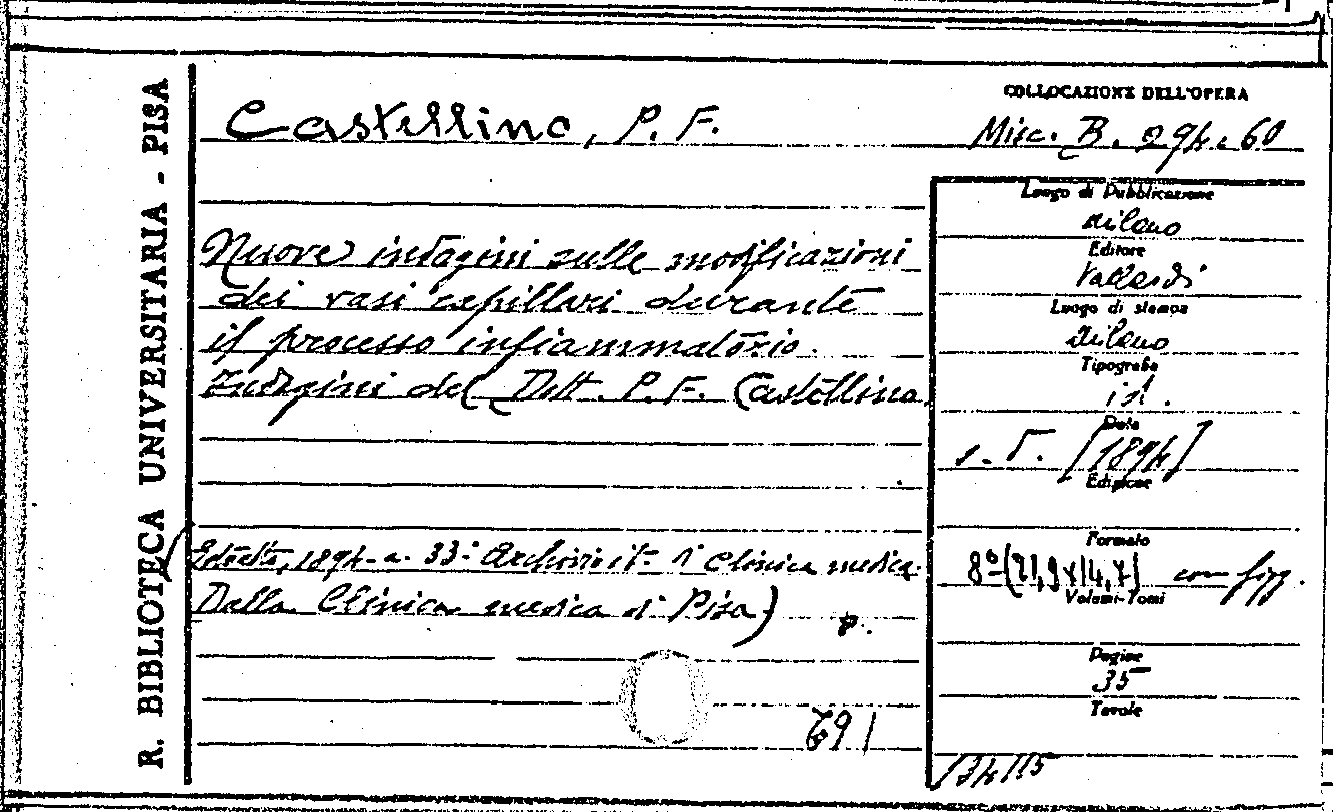 R. BIBLIOTECA UNIVERSITARIA - PISA
Castellino, P. F.
COLLOCAZIONE DELL'OPERA
Misc. B. 294. 60
Nuove indagini sulle modificazioni
dei vasi capillari durante
il processo infiammatorio.
Indagini del Dott. P. F. Castellino
(Estratto, 1894 - a. 33° Archivio it. di Clinica medica.
Dalla Clinica medica di Pisa)
691
Luogo di Pubblicazione
Milano
Editore
Vallardi
Luogo di stampa
Milano
Tipografia
id.
Data
s. d. [1894]
Edizione
Formato
8° (21,9 x 14,7) con figg.
Volumi-Tomi
Pagine
35
Tavole
134115